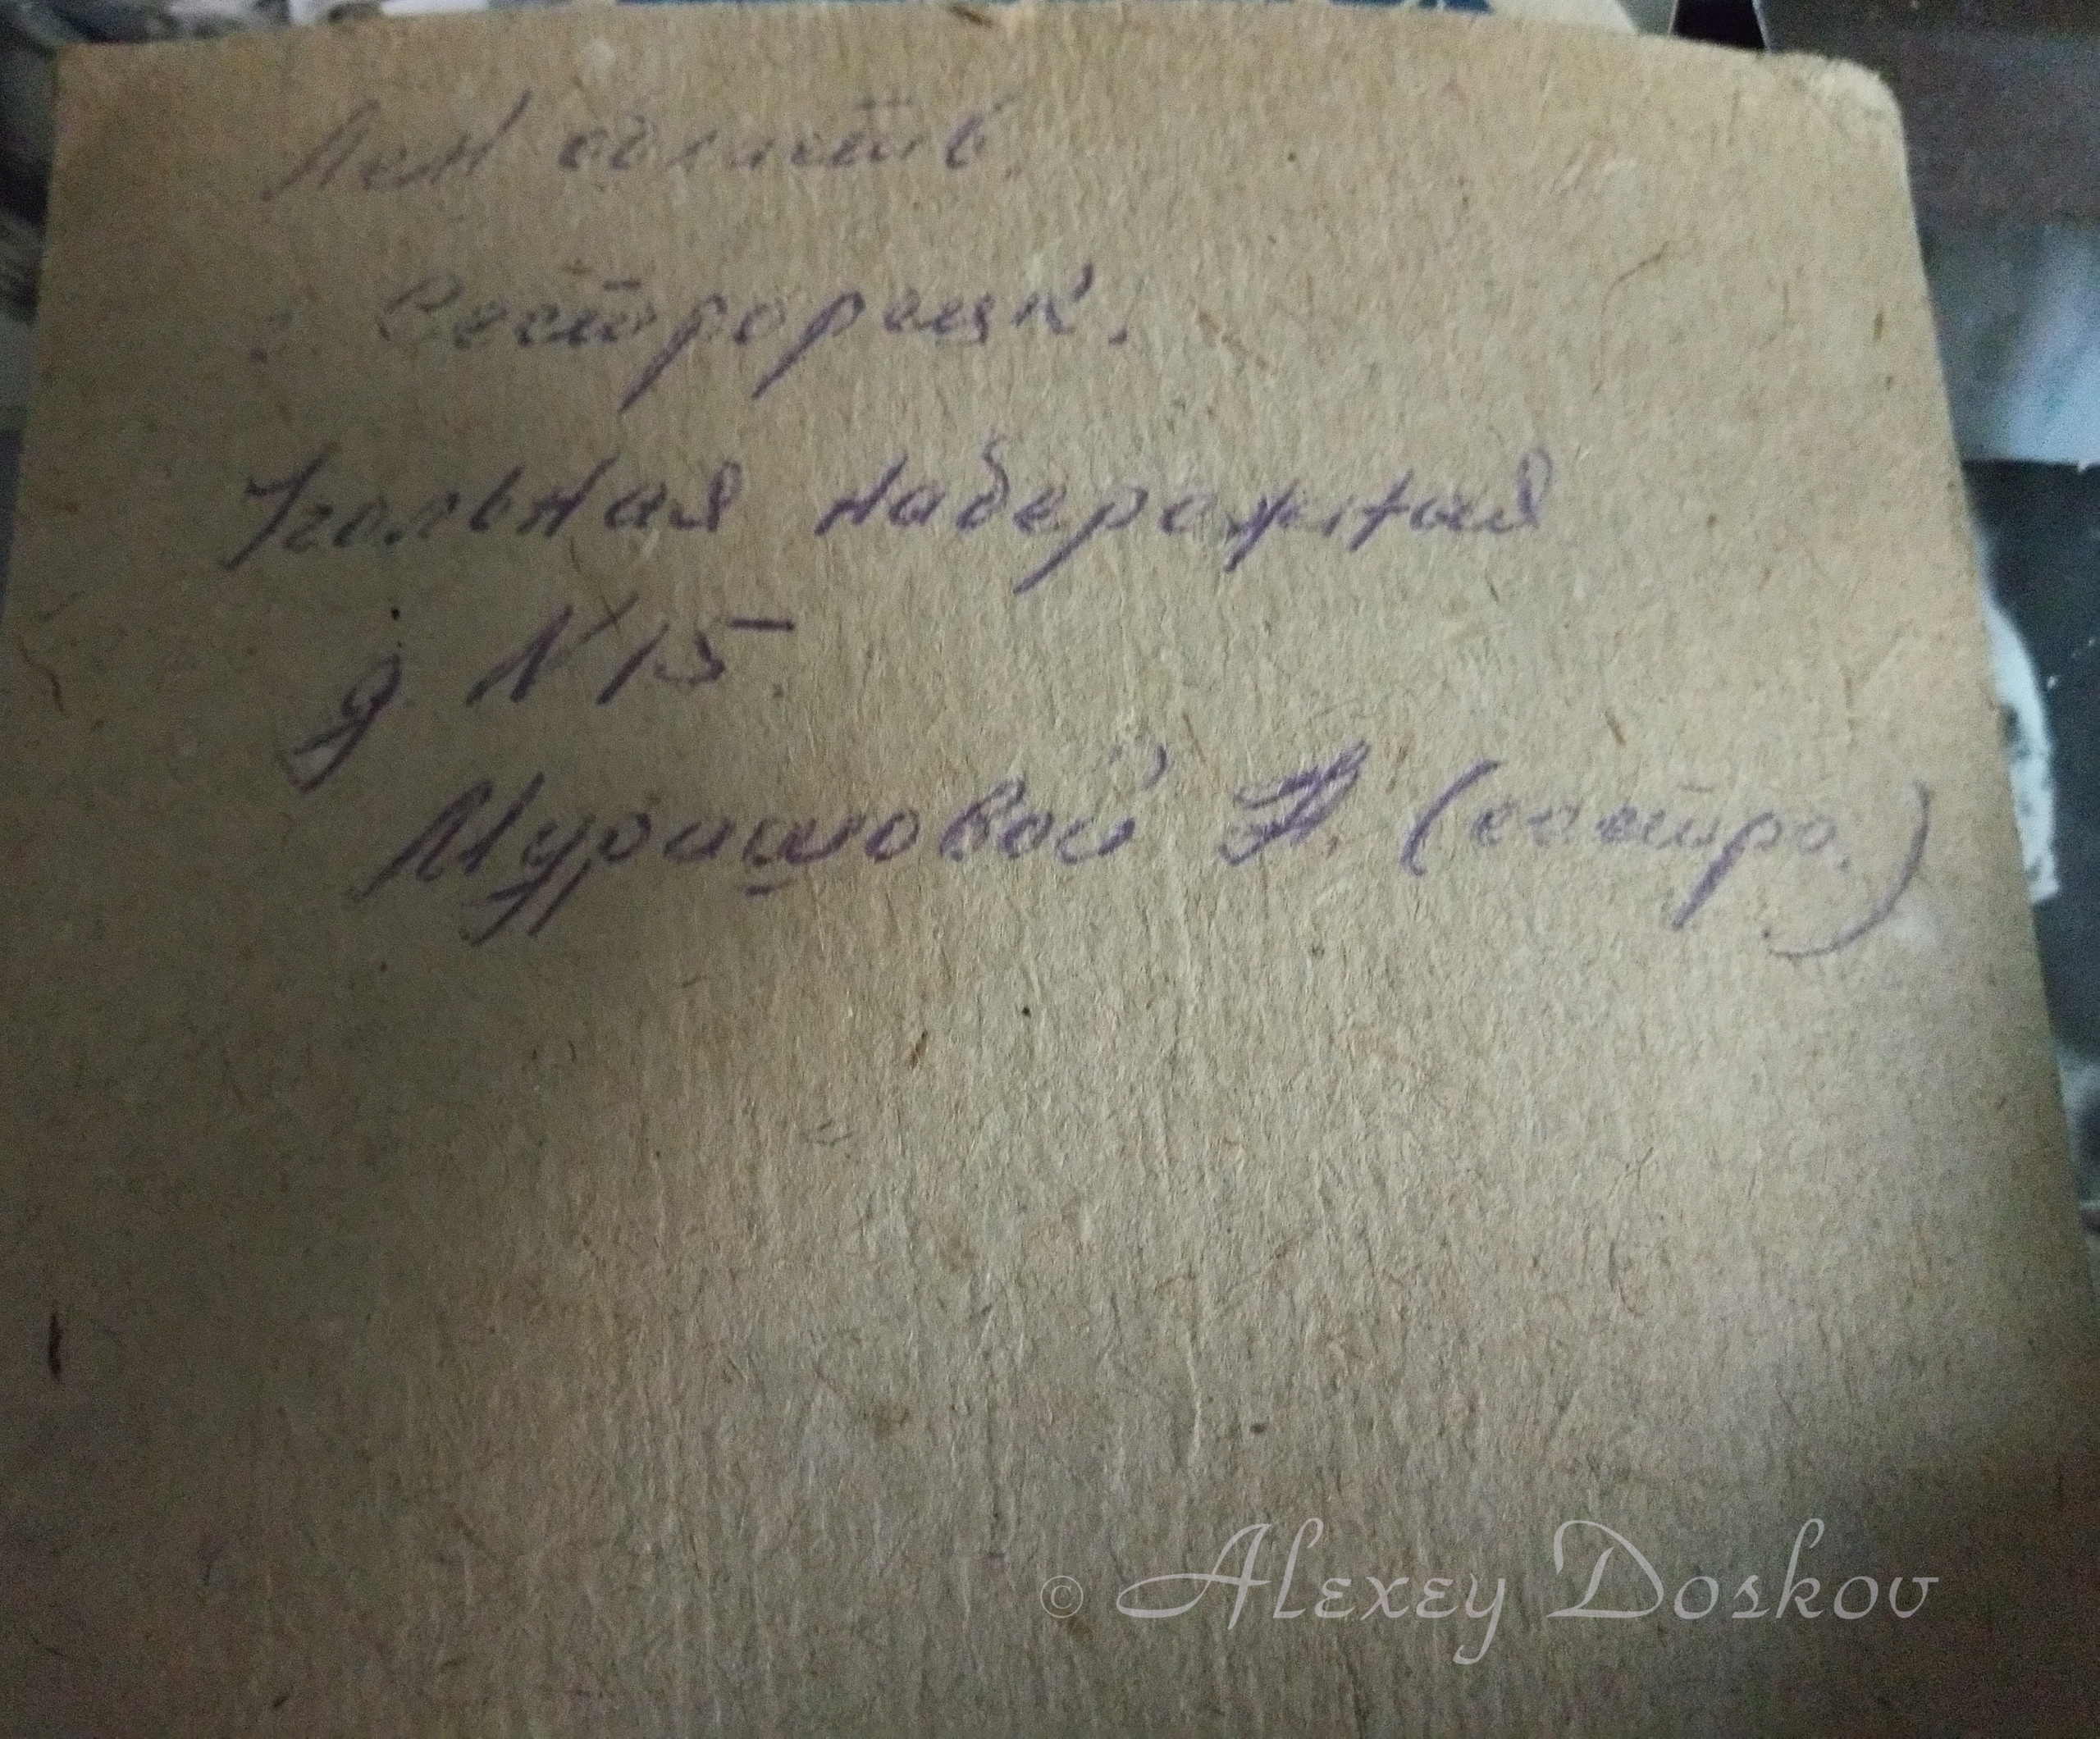 Лен область.
г. Сестрорецк.
Угольная набережная
д. N 15.
Мурашовой А. (сестра.)
© Alexey Doskov